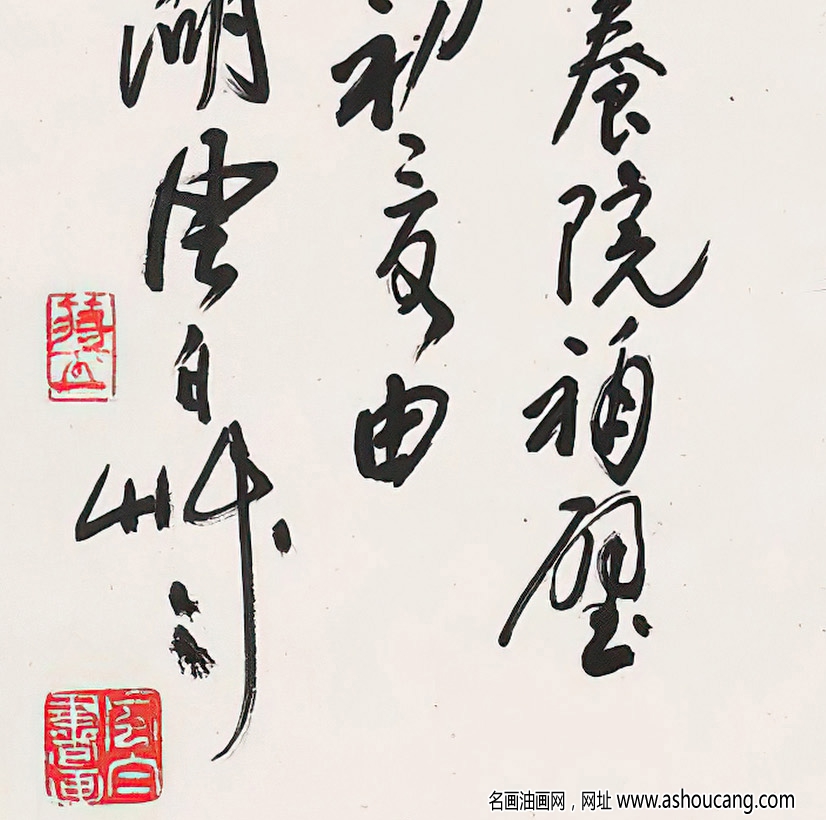 養院補壁
初夏由
湖雲白艸
名画油画网，网址 www.ashoucang.com